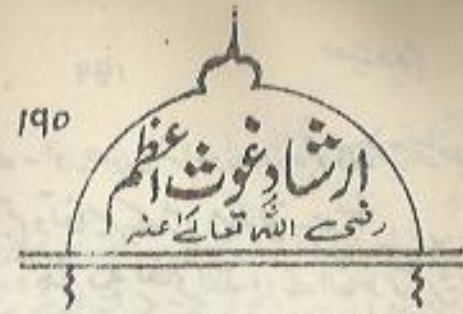 ۱۹۰
ارشادِ غوث اعظم
رضی اللہ تعالےٰ عنہ